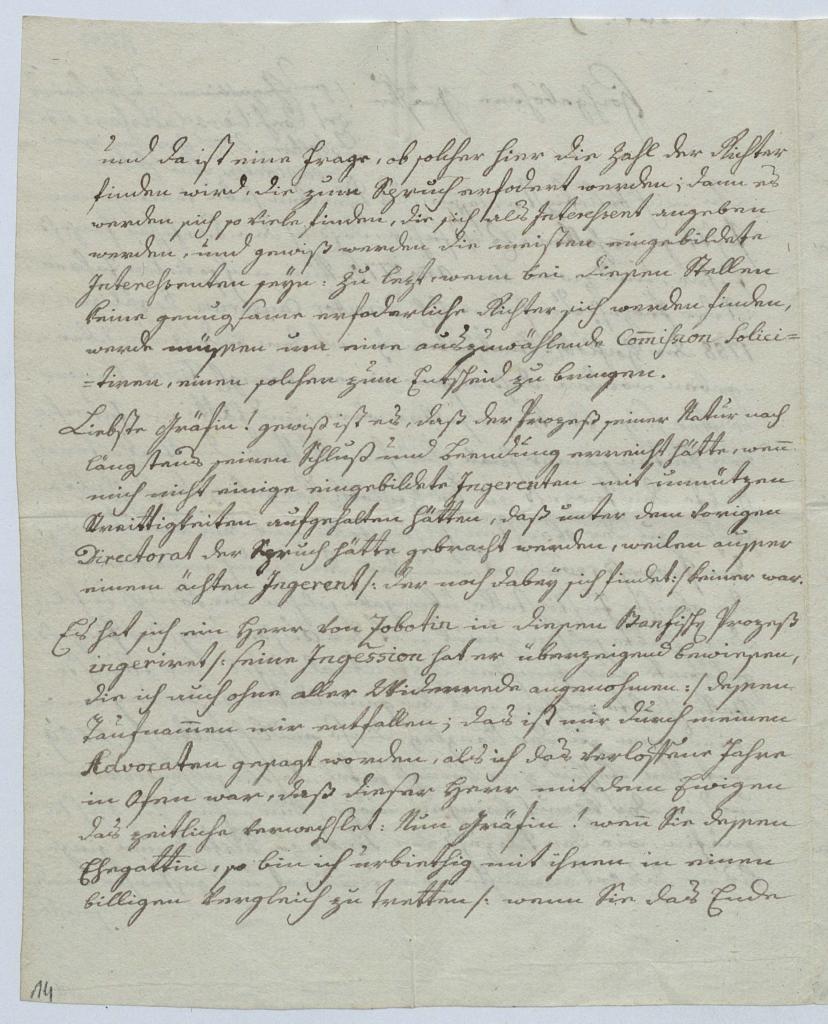 und da ist eine Frage, ob solcher hier die Zahl der Richter
finden wird, die zum Spruch erfodert werden; dann es
werden sich so viele finden, die sich als Interehsent angeben
werden, und gewiß werden die meisten eingebildete
Interehsenten seyn: Zu lezt, wenn bei diesen Stellen
keine genugsame erfoderliche Richter sich werden finden,
werde müssen um eine auszuwählende Com̅ission Solici=
=tiren, einen solchen zum Entscheid zu bringen.
Liebste Gräfin! gewiß ist es, daß der Prozeß seiner Natur nach
längstens seinen Schluß und beendung erreicht hätte, wen̅
mich nicht einige eingebildete Ingerenten mit unnützen
Streittigkeiten aufgehalten hätten, daß unter dem vorigen
Directorat der Spruch hätte gebracht werden, weilen ausser
einem ächten Ingerent /: der noch dabey sich findet :/ keiner war.
Es hat sich ein Herr von Jobotin in diesen Banfischen Prozeß
ingeriret /: seine Ingession hat er überzeigend bewiesen,
die ich auch ohne aller Widerrede angenohmen :/ dessen
Taufnam̅en mir entfallen; das ist mir durch meinen
Advocaten gesagt worden, als ich das verlossene Jahre
in Ofen war, daß dieser Herr mit dem Ewigen
das zeitliche verwechslet: Nun Gräfin! wen̅ Sie dessen
Ehegattin, so bin ich urbiethig mit ihnen in einen
billigen Vergleich zu tretten /: wenn Sie das Ende
14